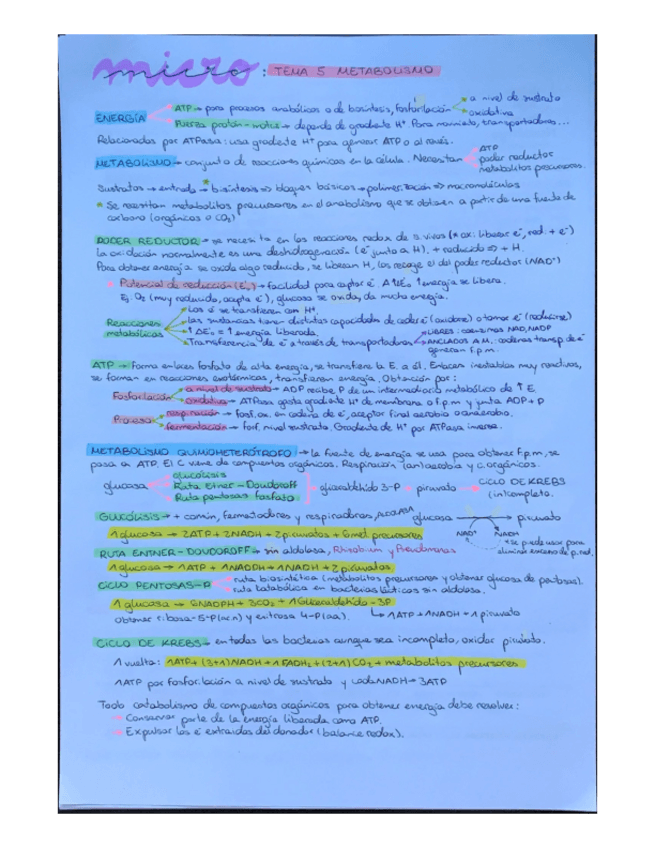 micro: TEMA 5 METABOLISMO
ENERGÍA ATP → para procesos anabólicos o de biosíntesis, fosforilación a nivel de sustrato
oxidativa
Fuerza protón-motriz → depende de gradiente H⁺ Para movimiento, transportadores...
Relacionadas por ATPasa: usa gradiente H⁺ para generar ATP o al revés.
METABOLISMO → conjunto de reacciones químicas en la célula. Necesitan ATP
poder reductor
metabolitos precursores.
Sustratos → entrada → biosíntesis ⇒ bloques básicos → polimerización ⇒ macromoléculas
* Se necesitan metabolitos precursores en el anabolismo que se obtienen a partir de una fuente de
carbono (orgánicos o CO₂)
PODER REDUCTOR → se necesita en las reacciones redox de s. vivos (* ox: liberar e⁻, red. + e⁻)
La oxidación normalmente es una deshidrogenación (e⁻ junto a H). + reducido ⇒ + H.
Para obtener energía se oxida algo reducido, se liberan H, los recoge el del poder reductor (NAD⁺)
Potencial de reducción (E'₀) → facilidad para captar e⁻. A ↑ΔE'₀ ↑energía se libera.
Ej. O₂ (muy reducido, acepta e⁻), glucosa se oxida, da mucha energía.
Reacciones metabólicas Los e⁻ se transfieren con H⁺.
las sustancias tienen distintas capacidades de ceder e⁻ (oxidarse) o tomar e⁻ (reducirse)
↑ ΔE'₀ = ↑ energía liberada.
Transferencia de e⁻ a través de transportadores LIBRES: coenzimas NAD, NADP
ANCLADOS A M.: cadenas transp. de e⁻
generan f.p.m.
ATP → Forma enlaces fosfato de alta energía, se transfiere la E. a él. Enlaces inestables muy reactivos,
se forman en reacciones exotérmicas, transfieren energía. Obtención por:
Fosforilación a nivel de sustrato → ADP recibe P de un intermediario metabólico de ↑ E.
oxidativa → ATPasa gasta gradiente H⁺ de membrana o f.p.m y junta ADP + P
Proceso respiración → fosf. ox. en cadena de e⁻, aceptor final aerobio o anaerobio.
fermentación → fosf. nivel sustrato. Gradiente de H⁺ por ATPasa inversa.
METABOLISMO QUIMIOHETERÓTROFO → la fuente de energía se usa para obtener F.p.m, se
pasa a ATP. El C viene de compuestos orgánicos. Respiración (an)aerobia y c. orgánicos.
glucosa glucólisis
Ruta Etner-Doudoroff gliceraldehído 3-P → piruvato → CICLO DE KREBS
Ruta pentosas fosfato (in)completo.
GLUCÓLISIS → + común, fermentadores y respiradores, glucosa → piruvato
NAD⁺ NADH
1 glucosa → 2ATP + 2NADH + 2piruvatos + 6met. precursores
* se puede usar para
eliminar exceso de p. red.
RUTA ENTNER-DOUDOROFF → sin aldolasa, Rhizobium y Pseudomonas
1 glucosa → 1ATP + 1NADPH + 1NADH + 2 piruvatos
CICLO PENTOSAS-P ruta biosintética (metabolitos precursores y obtener glucosa de pentosas).
ruta catabólica en bacterias lácticas sin aldolasa.
1 glucosa → 6NADPH + 3CO₂ + 1Gliceraldehído-3P
Obtiene ribosa-5-P (ac.n) y eritrosa 4-P (aa). ↳ 1ATP + 1NADH + 1 piruvato
CICLO DE KREBS → en todas las bacterias aunque sea incompleto, oxidar piruvato.
1 vuelta: 1ATP + (3+1)NADH + 1FADH₂ + (2+1)CO₂ + metabolitos precursores
1ATP por fosforilación a nivel de sustrato y cada NADH → 3ATP
Todo catabolismo de compuestos orgánicos para obtener energía debe resolver:
Conservar parte de la energía liberada como ATP.
Expulsar los e⁻ extraídos del donador (balance redox).